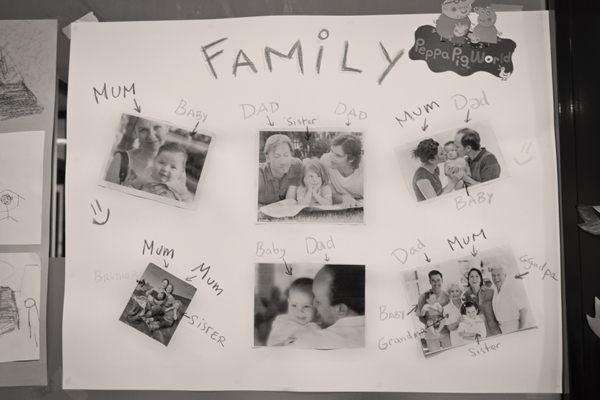 FAMiLY
Peppa Pig World
MUM
BABY
DAD
Sister
DAD
Mum
Dad
BABY
Mum
Mum
BROTHER
SISTER
Baby
Dad
Dad
MUM
GRandpa
BABY
Grandma
Sister